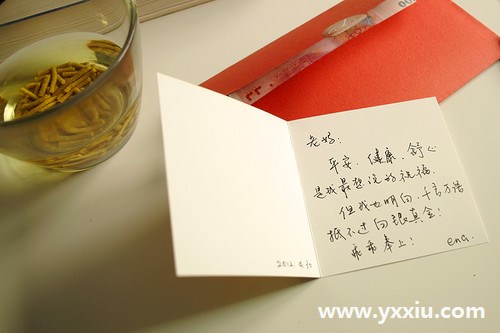 老好：
平安、健康、舒心
是我最想说的祝福。
但我也明白，千言万语
抵不过白银真金！
乖乖奉上！ ena.
2012.
www.yxxiu.com